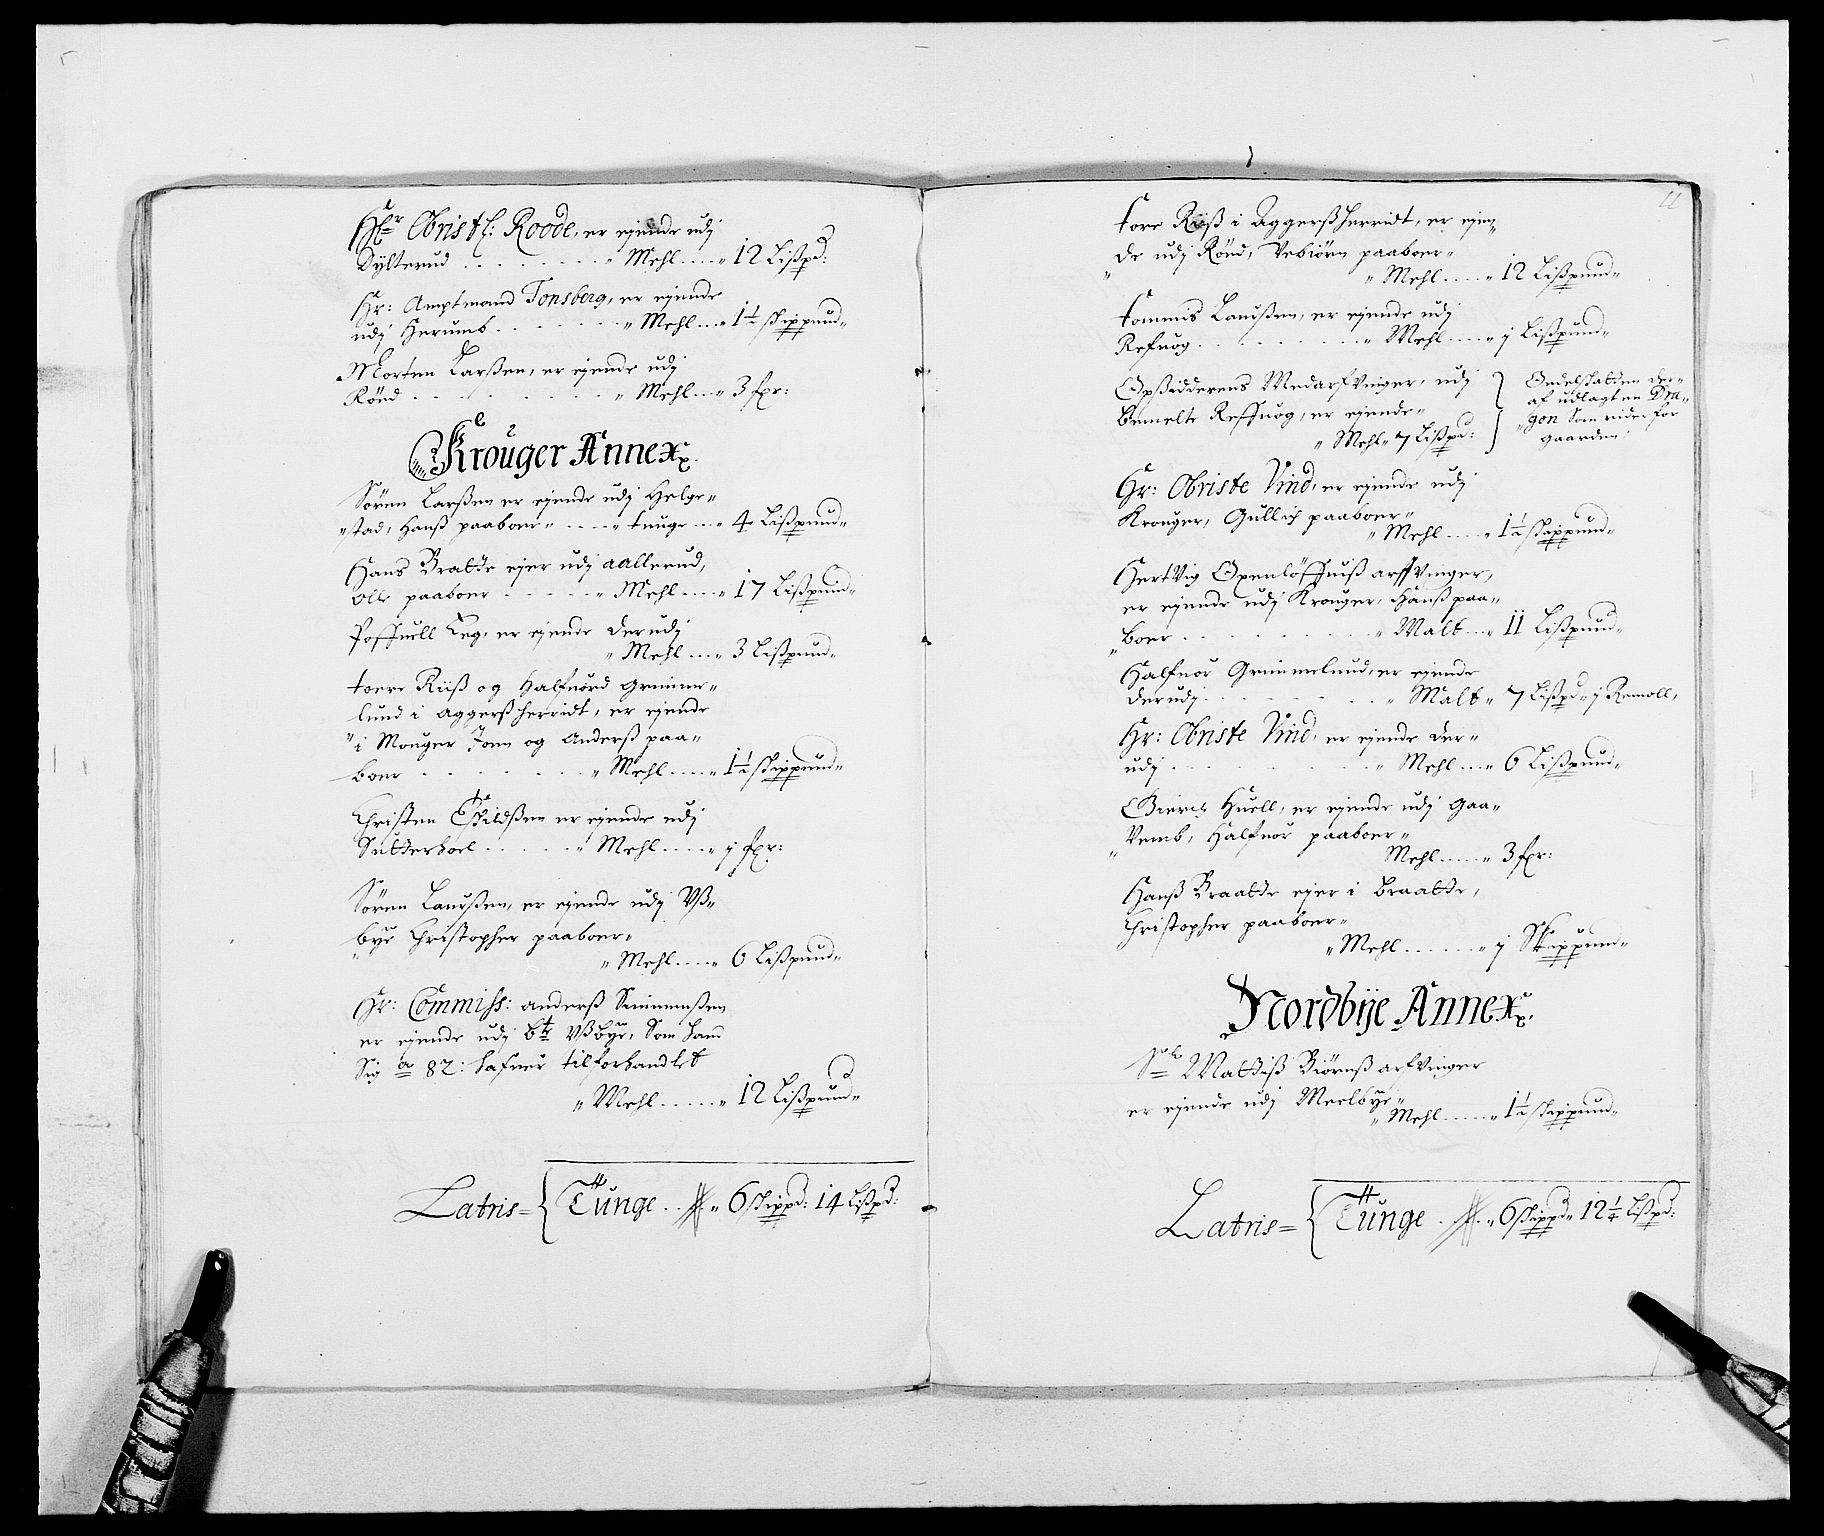 Hr Obristl: Roode, er ejende udj
Dÿlterud . . . . . . . . " Mehl ..... " 12 Lißpd:
Hr: Amptmand Tonsberg, er ejende
udj Herumb . . . . . . . " Mehl .... " 1½ skippund "
Morten Larßen, er ejende udj
Rönd . . . . . . . . . . " Mehl .... " 3 fxr:
Krouger Annex
Sören Larßen er ejende udj Helge "
" stad, Hanß paaboer " ...... " tunge .... " 4 Lißpund "
Hans Bratte ejer udj aallerud,
Olle paaboer . . . . . " Mehl ..... " 17 Lißpund "
Poffuell Leg, er ejende derudj
" Mehl .... " 3 Lißpund "
toere Riiß og Halfuord Grimme "
lund i Aggerßherridt, er ejende
" i Mouger Jon og Anderß paa "
boer . . . . . . . . " Mehl ..... " 1½ skippund "
Christen Eskildßen er ejende udj
Sutterhoel . . . . . " Mehl ..... " j fxr:
Sören Laurßen, er ejende udj Vß "
bye Christopher paaboer "
" Mehl ..... " 6 Lißpund "
Hr: Commiss: anderß Simmenßen
er ejende udj bte Vßbye, Som hand
Sig ao 82: hafuer tilforhandlet
" Mehl ...... " 12 Lißpund "
Latris = { Tunge .. " 6 skippd: 14 Lißpd:
11
tore Riiß i Aggerßherridt, er ejen "
" de udj Rönd, Vebiörn paaboer "
" Mehl ..... " 12 Lißpund "
tommis Laurßen, er ejende udj
Refuog . . . . . . . . . . " Mehl ..... " j Lißpund "
Opßidderens Medarfvinger, udj
bemelte Reffuog, er ejende "
" Mehl " 7 Lißpd:
Ondelskatten der "
af udlagt en Dra "
" gon Som rider for
gaarden,
Hr: Obriste Vind, er ejende udj
Krouger, Gullich paaboer "
" Mehl ..... " 1½ skippund "
Hertvig Openlöffuiß arffvinger,
er ejende udj Krouger, Hanß paa "
" boer . . . . . . . . . . " Malt .... " 11 Lißpund "
Halfuor Grimmelund, er ejende
derudj . . . . . . . . . " Malt " 7 Lißpd " j Remoll,
Hr: Obriste Vind, er ejende der "
udj . . . . . . . . . . " Mehl .... " 6 Lißpund "
Huell, er ejende udj Gaa "
" Vemb, Halfuor paaboer "
Mehl ...... " 3 fxr:
Hanß Braatte ejer i Braatte,
Christopher paaboer "
" Mehl ........ " j Skippund "
Nordbÿe Annex
Sl Mattiß Biörnß arfvinger
er ejende udj Meelbye "
" Mehl ...... " 1½ skippund "
Latris = { Tunge .. " 6 skippd " 12 ¼ Lißpd: